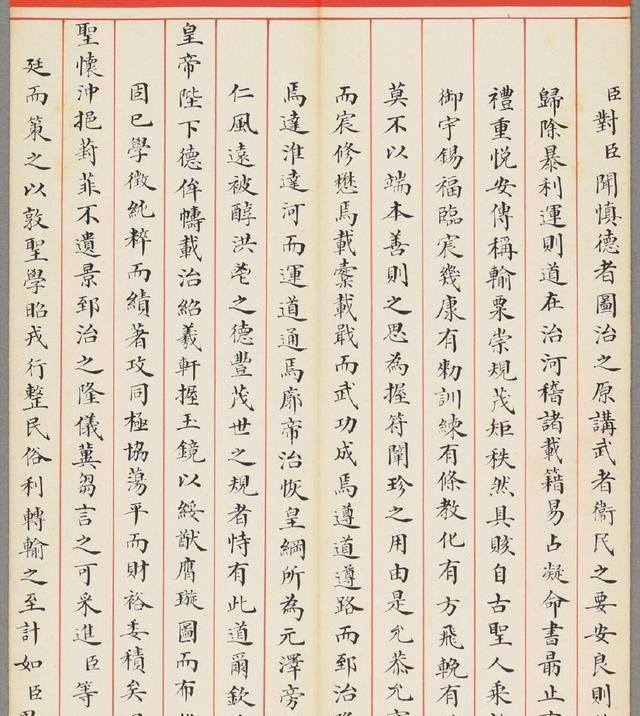 臣對臣聞慎德者圖治之原講武者衞民之要安良則
歸除暴利運則道在治河稽諸載籍易占凝命書最止
禮重悅安傳稱輸粟崇規茂矩秩然具賅自古聖人乘
御宇錫福臨宸幾康有勑訓練有條教化有方飛輓有
莫不以端本善則之思為握符闡珍之用由是允恭允
而宸修懋焉載櫜載戢而武功成焉遵道遵路而郅治
焉達淮達河而運道通焉廓帝治恢皇綱所為元澤旁
仁風遠被醇洪鬯之德豐茂世之規者恃有此道爾欽
皇帝陛下德侔幬載治紹羲軒握玉鏡以綏猷膺璇圖而布
固已學徵純粹而績著攻同極協蕩平而財裕委積矣
聖懷沖挹葑菲不遺景郅治之隆儀冀芻言之可采進臣等
廷而策之以敦聖學昭戎行整民俗利轉輸之至計如臣